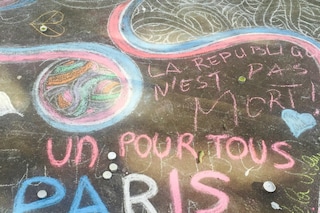 LA REPUBLIQUE
N'EST PAS
MORTE
UN POUR TOUS
PARIS